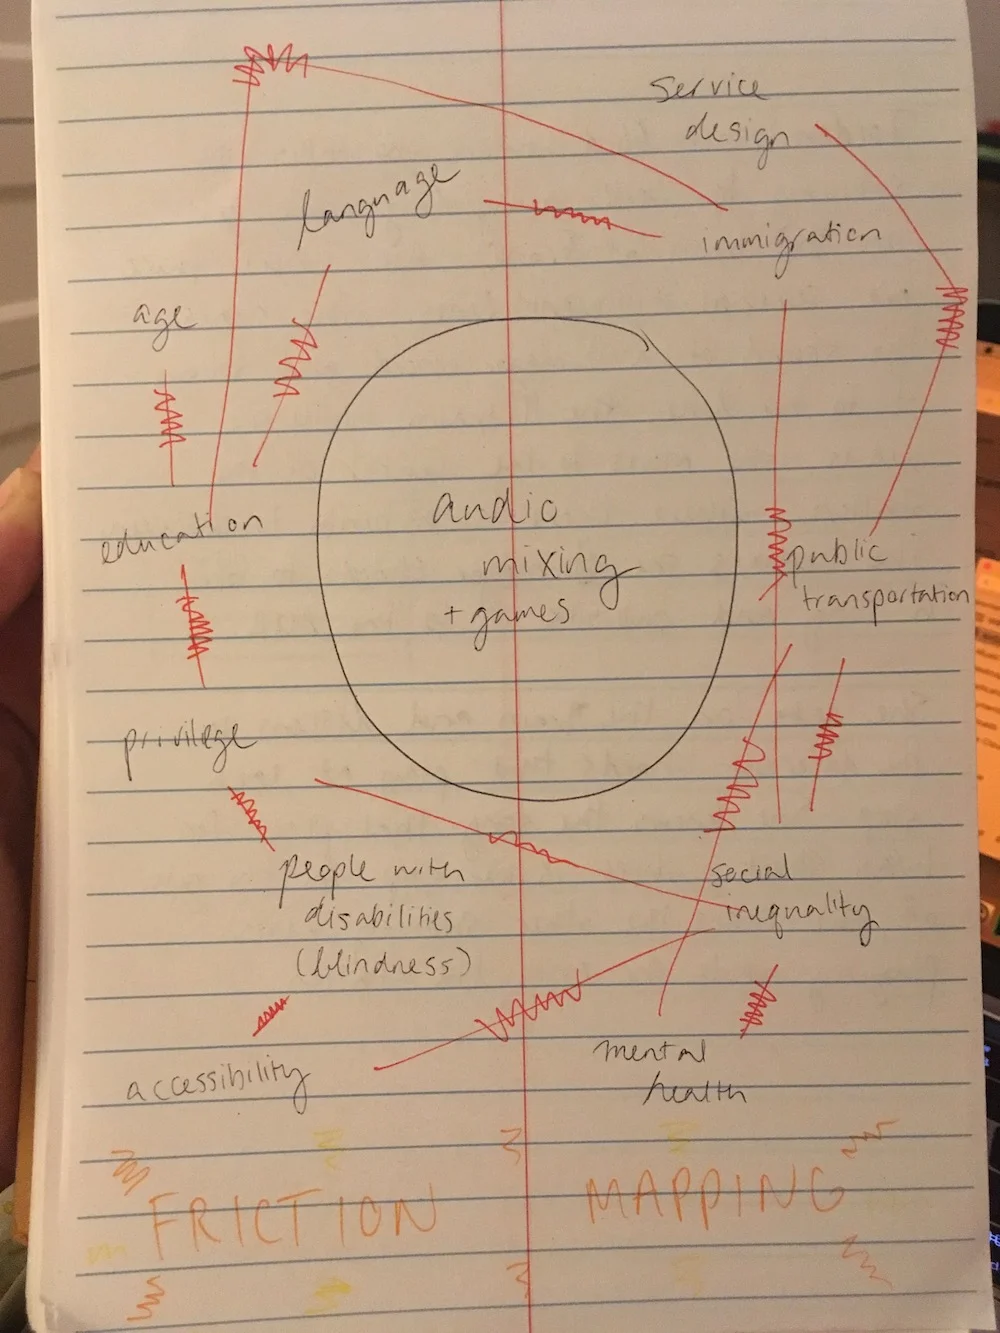 service
design
language
immigration
age
audio
mixing
+ games
education
public
transportation
privilege
people with
disabilities
(blindness)
social
inequality
accessibility
mental
health
FRICTION MAPPING